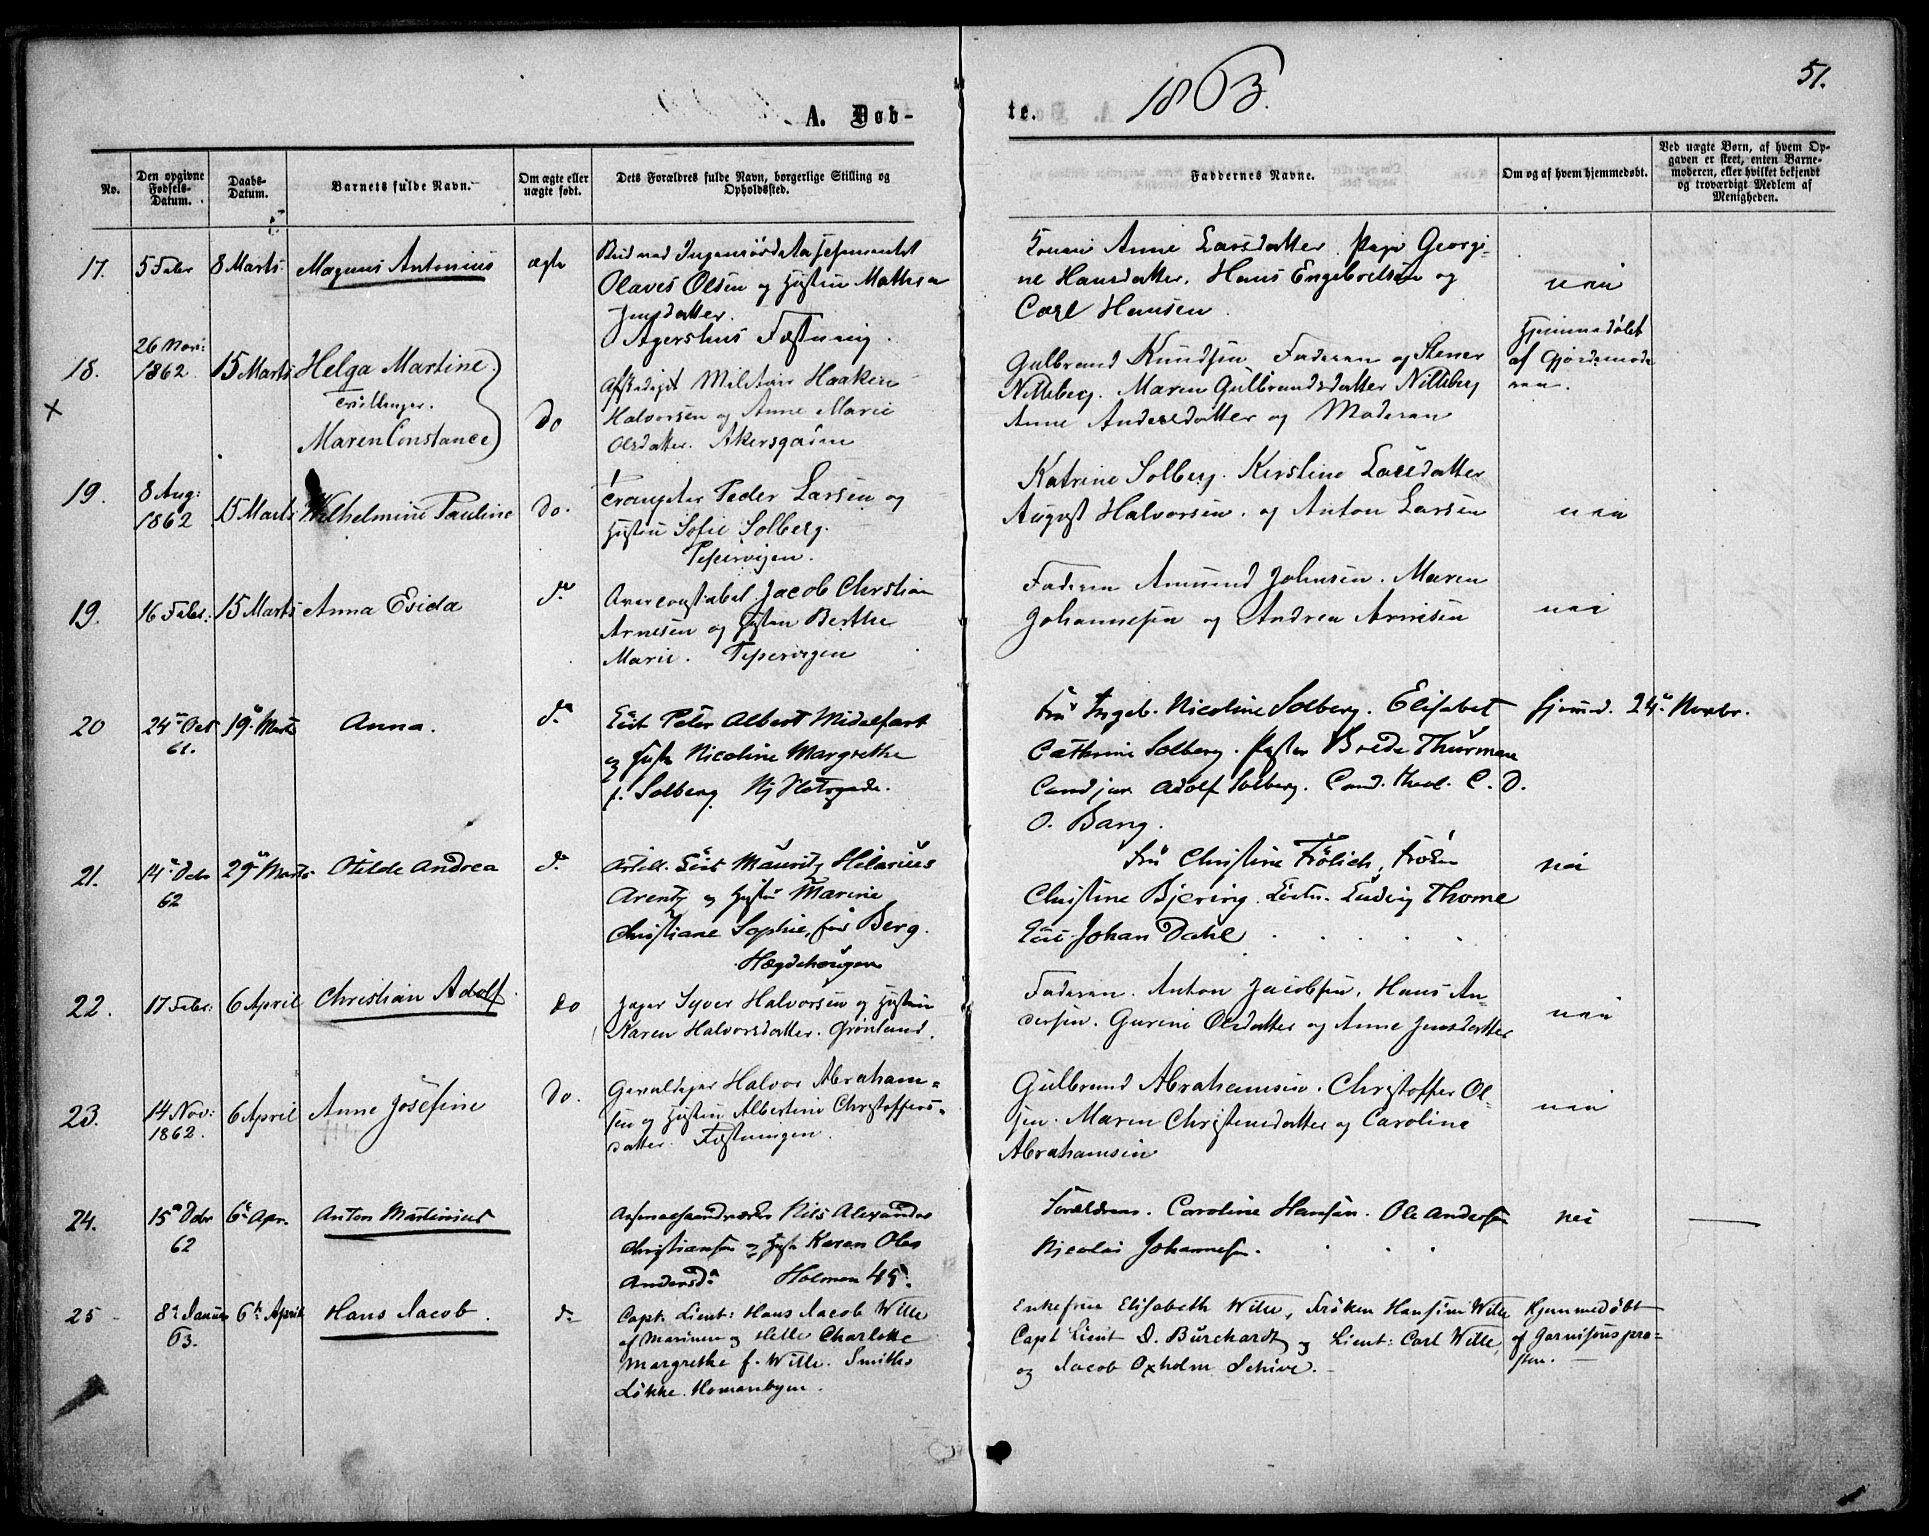 A. Døb-
te.
1863.
51.
No.
Den opgivne Fødsels-Datum.
Daabs-Datum.
Barnets fulde Navn.
Om ægte eller uægte født.
Dets Forældres fulde Navn, borgerlige Stilling og Opholdssted.
Faddernes Navne.
Om og af hvem hjemmedøbt.
Ved uægte Børn, af hvem Opgaven er skeet, enten Barnemoderen, eller hvilket bekjendt og troværdigt Medlem af Menigheden.
17. 5 Febr 8 Marts Magnus Antonius ægte
Olaves Olsen og Hustru Mathea
Jensdatter.
Agershus Fæstning.
Anne Larsdatter. Pige Georgi-
ne Hansdatter. Hans Engebretsen og
Carl Hansen
nei
18. 26 Nov: 1862 15 Marts Helga Martine.
Tvillinger.
Maren Constance
Do
Afskediget Militair Haaken
Halvorsen og Anne Marie
Olsdatter. Akersgaden
Gulbrand Knudsen Faderen og Stener
Nilleberg. Maren Gulbrandsdatter Nilleberg
Anne Andersdatter og Moderen
Hjemmedøbt
af Gjordemode
ren.
19. 8 Aug: 1862 15 Marts Wilhelmine Pauline Do.
Trompeter Peder Larsen og
Hustru Sofie Solberg.
Pipervigen.
Katrine Solberg. Kirstine Larsdatter
August Halvorsen. og Anton Larsen
nei
19. 16 Febr: 15 Marts Anna Esida do
Overconstabel Jacob Christian
Arnesen og Hustru Berthe
Marie. Pipervigen
Faderen Amund Johnsen. Maren
Johannesen og Andrea Arnesen
nei
20 24de Oct 61. 19de Marts Anna. do
Lieut Peter Albert Midelfart
og Hustr Nicoline Margrethe
f. Solberg
Fru Ingeb. Nicoline Solberg. Elisabet
Cathrine Solberg. Brede Thurman
Cand jur Adolf Solberg. Cand. theol. C. D.
O. Bang.
Hjemmd. 24de Novbr.
21. 14de Dcbr 62 29de Marts Otilde Andrea do
Artill. Lieut Mauritz Hilarius
Arentz og Hustru Marine
Christiane Sophie, fød Berg.
Hægdehaugen
Fru Christine Frölich, Frøken
Christine Bjering. Ludvig Thome
Johan Dahl
nei
22. 17 Febr: 6 April Christian Adolf. do
Jæger Syver Halvorsen og Hustru
Maren Halvorsdatter. Grønland.
Faderen. Anton Jacobsen. Hans An-
dersen. Gurine Olsdatter og Anne Jensdatter
nei
23. 14 Nov: 1862. 6 April Anne Josefine Do.
Halvor Abraham-
sen og Hustru Albertine Christoffers-
datter. Fæstningen.
Gulbrand Abrahamsen. Christoffer Ol-
sen. Maren Christensdatter og Caroline
Abrahamsen
nei
24. 15de Dcbr 62 6te Apr. Anton Martinius
Nils Alexander
Christiansen og Hustr Karen Olea
Andersd. Holmen 45.
Forældrene. Caroline Hansen. Ole Andersen
Nicolai Johannesen.
nei
25 8de Januar 63. 6te April Hans Jacob. do
Capt. Lieut: Hans Jacob Wille
af Marinen og Helle Charlotte
Margrethe f. Wille. Smiths
Løkke. Homansbyen.
Enkefrue Elisabeth Wille, Frøken Hansine Wille
Capt Lieut D. Burchardt og Lieut: Carl Wille,
og Jacob Oxholm Schive.
Hjemmedøbt
af Garnisonspræ-
sten.